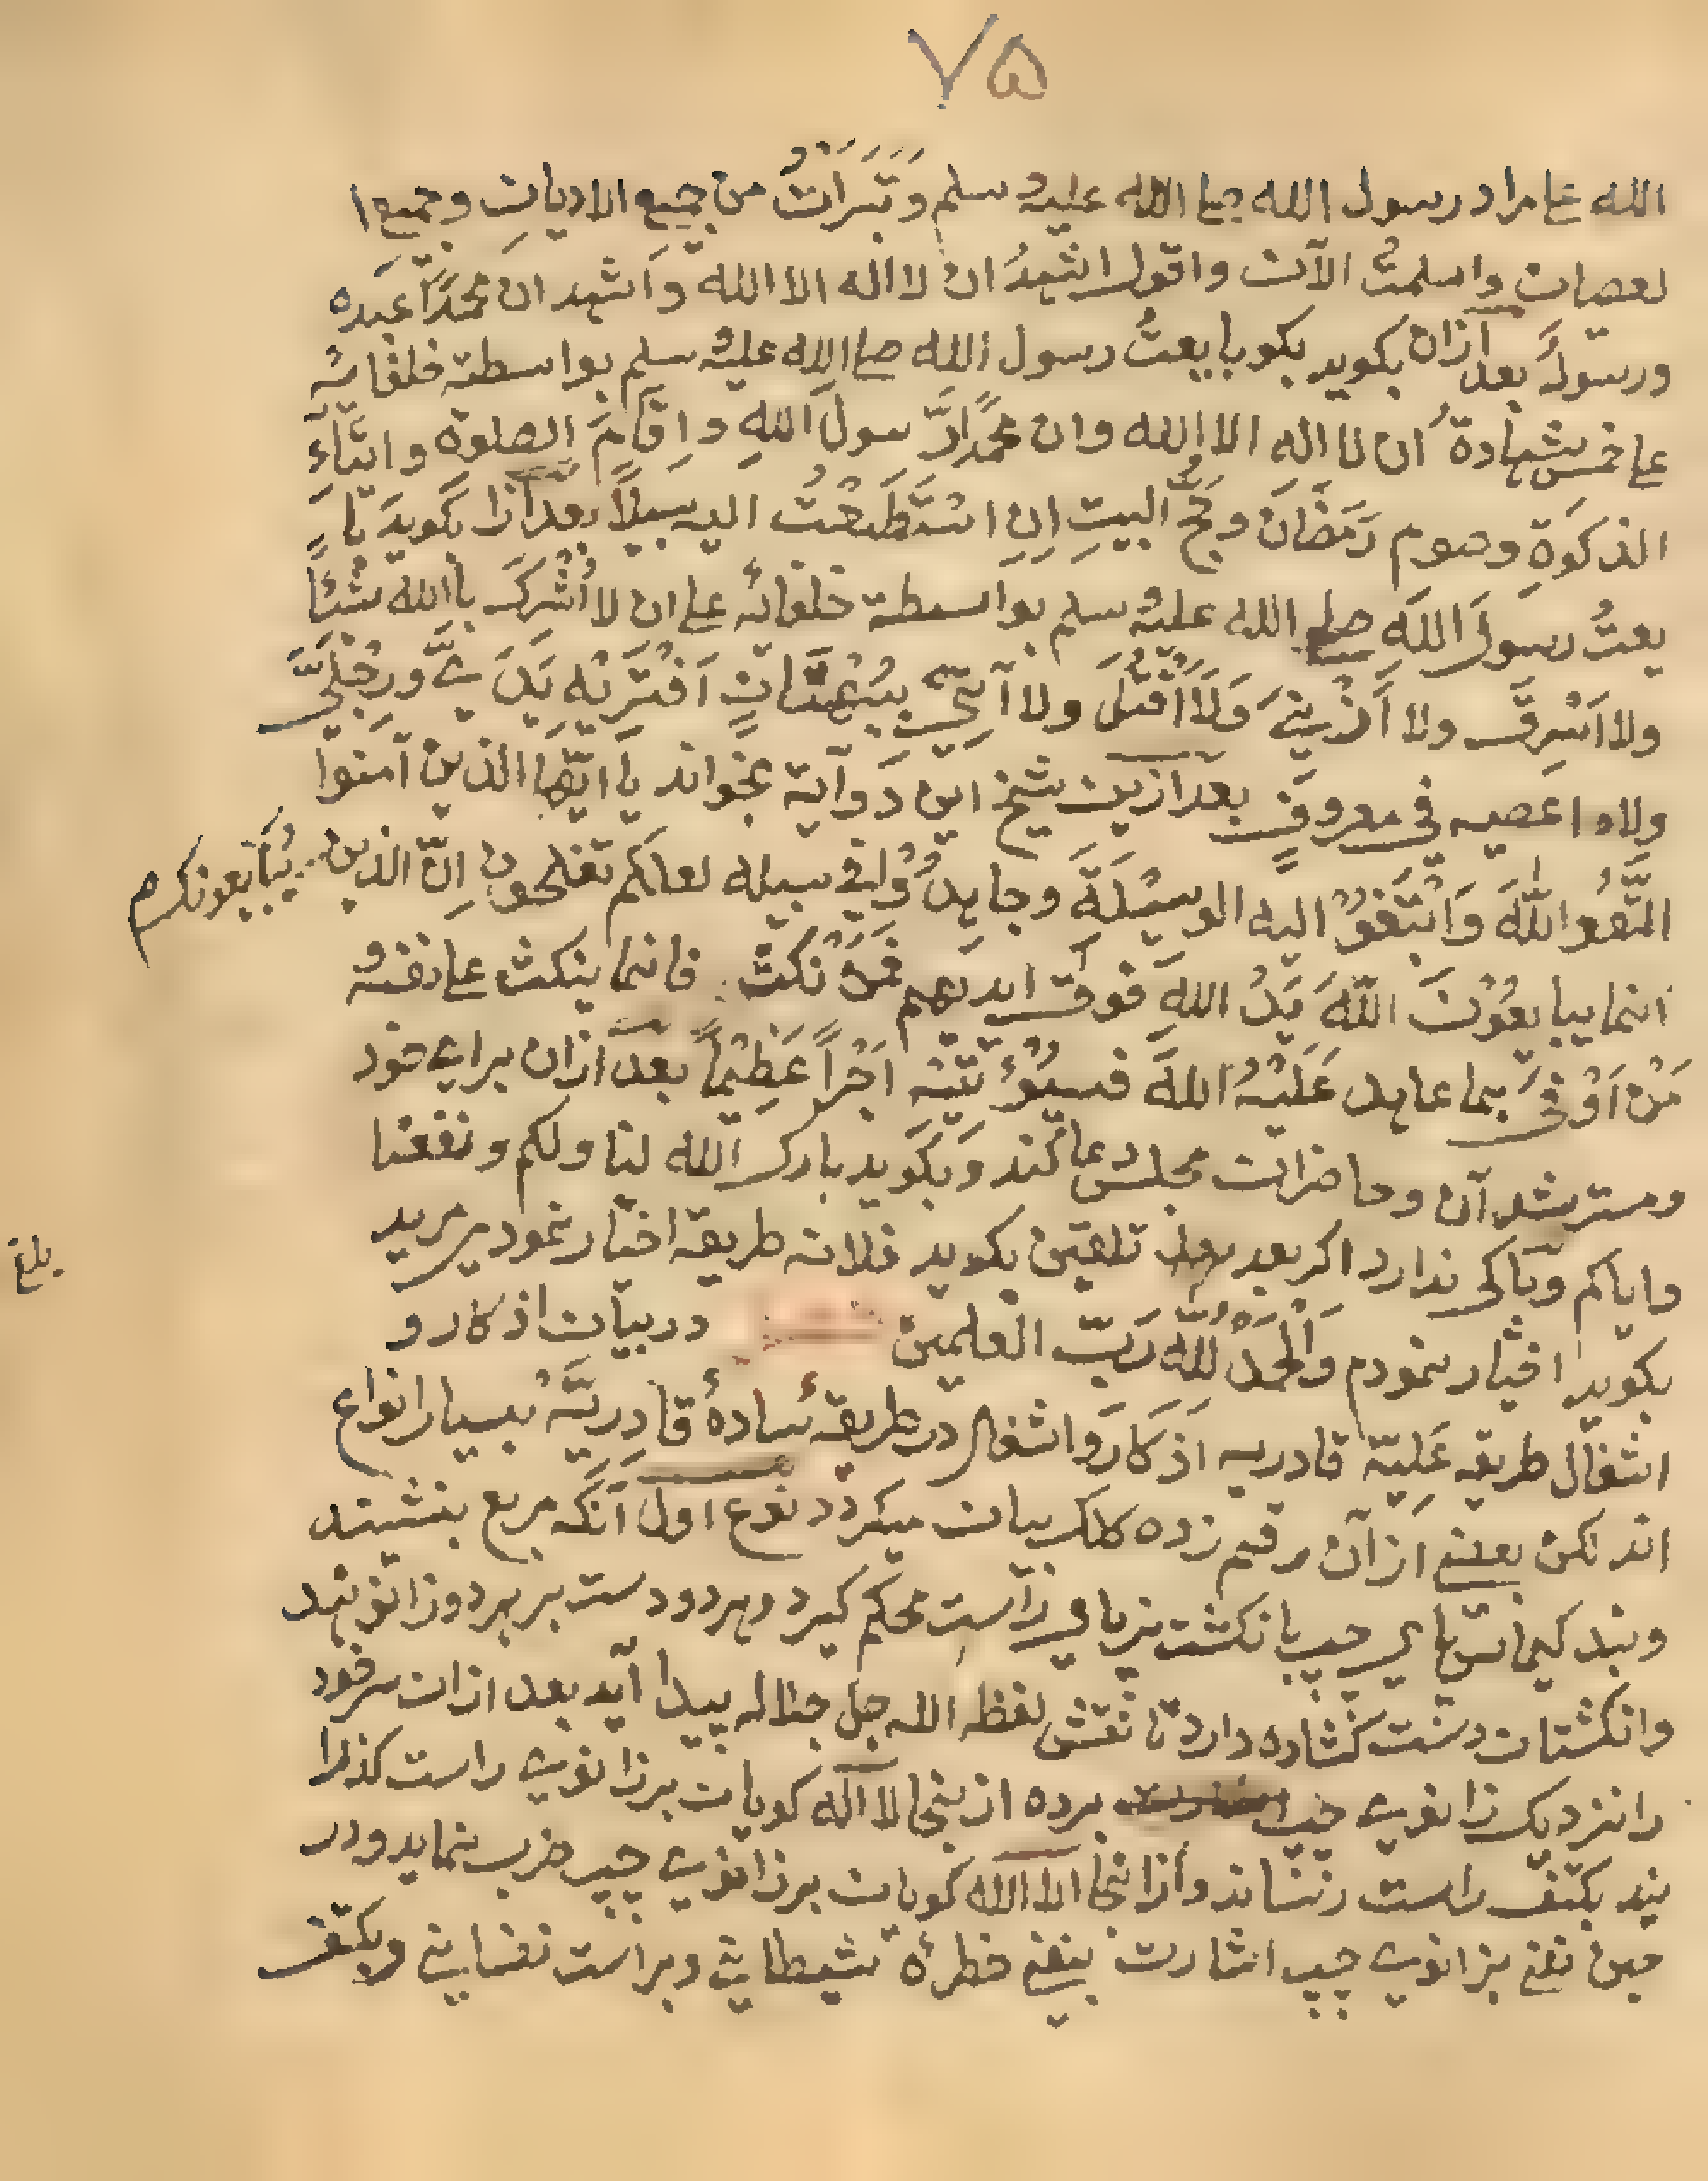 ۷۵
الله علی مراد رسول الله صلی الله علیه وسلم وتَبَرَّاتُ من جمیع الادیانِ و جمیع ا
لعصیان واسلمتُ الآن واقول اشهدُ ان لا اله الا الله وَاشهد ان محمدًا عبده
ورسولهُ بعد ازان بکوید بکو بایعتُ رسول الله صلی الله علیه وسلم بواسطة خلفائه
علی خمس شهادة اَن لا اله الا الله وان محمدًا رَّسولُ اللهِ و اِقَامَ الصلوة و ایتاءِ
الذکوَةِ وصوم رَمَضَانَ وحَجُّ البیتِ اِنِ اسْتَطَعْتُ الیه سبیلًا بعد ازا بکوید با
یعتُ رسولَ اللهِ صلی الله علیه وسلم بواسطة خلفائه علی ان لا اُشْرِکَ باالله شَیْئًا
ولا اَسْرِقَ ولا اَزْنِیَ وَلَا اَقْتُلَ ولا آتِیَ ببُهْتَانٍ اَفْتَرِیْهِ بَیْنَ یَدَیَّ ورِجْلَیَّ
ولا اعصیه فی معروفٍ بعد ازین شیخ این دو آیة بخواند یا ایّها الذین آمنوا
اتَّقُوا اللّٰهَ وَابْتَغُوْا الیه الوسِیْلَةَ وجاهِدُوْا فی سبیله لعلکم تفلحون اِنّ الذین یُبَایعونک
انما یبایعُوْنَ اللّٰهَ یَدُ اللهِ فوق ایدیهم فَمَنْ نکث فانما ینکث علی نفسه و
مَنْ اَوْفٰی بما عاهد عَلَیْهُ اللّٰهَ فسیُؤْتِیْه اَجْرًا عَظِیْمًا بعد ازان برای خود
ومسترشد آن وحاضران مجلس دعا کند وَبکَوید بارک الله لنا ولکم ونفعنا
وایاکم وبَاکی ندارد اکر بعد تلقین بکوید فلانه طریقه اختیار نمودی مرید
بکوید اختیار نمودم وَالْحَمْدُ لِلّٰهِ رَبِّ العلمین در بیان اذکار و
اشغال طریقه عَلِیّه قادریه اَذکار وَاشغال در طریقهٔ سادهٔ قادِریَّه بسیار انواع
اند لکن بعضے ازآن رقم زده کلک بیان میکردد نوع اول آنکه مربع بنشیند
وبند کیماس پای چپ بانکشت نر پای راست محکم کیرد وهردو دست بر هردو زانو نهد
وانکشتان دست کشاده دارد تا نقش لفظ الله جل جلاله پیدا آید بعد ازان سر خود
را نزدیک زانوی چپ برده از ینجا لا اله کویان برزانوی راست کذرا
نید بکتف راست رساند وازانجا الا الله کویان برزانوی چپ ضرب نماید ودر
حین نفی بزانوی چپ اشارت بنفی خطرهٔ شیطانی وبراست نفسانی وبکتف
بلغ